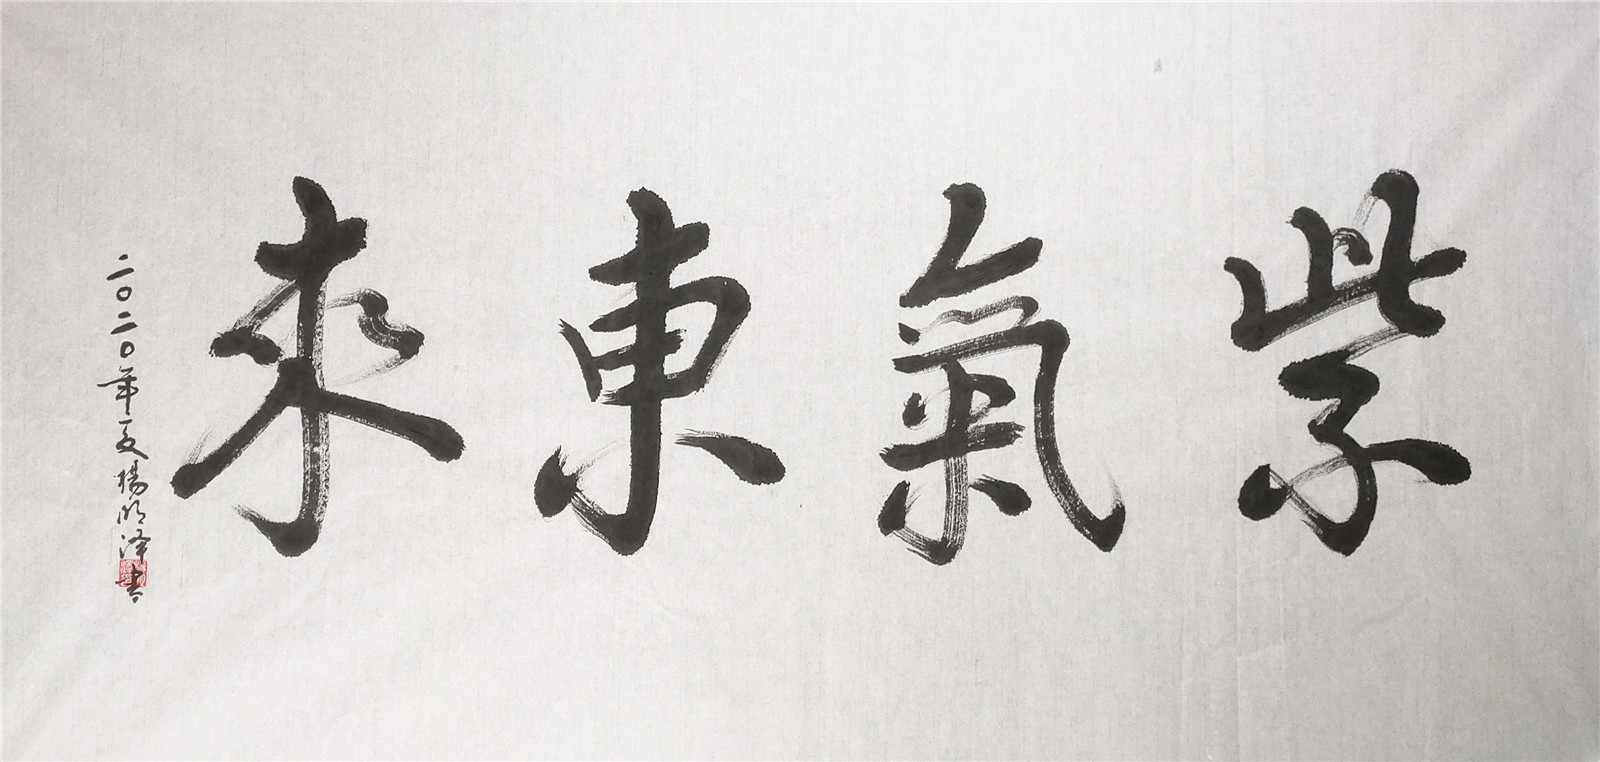 紫氣東來
二〇二〇年夏楊明泽書